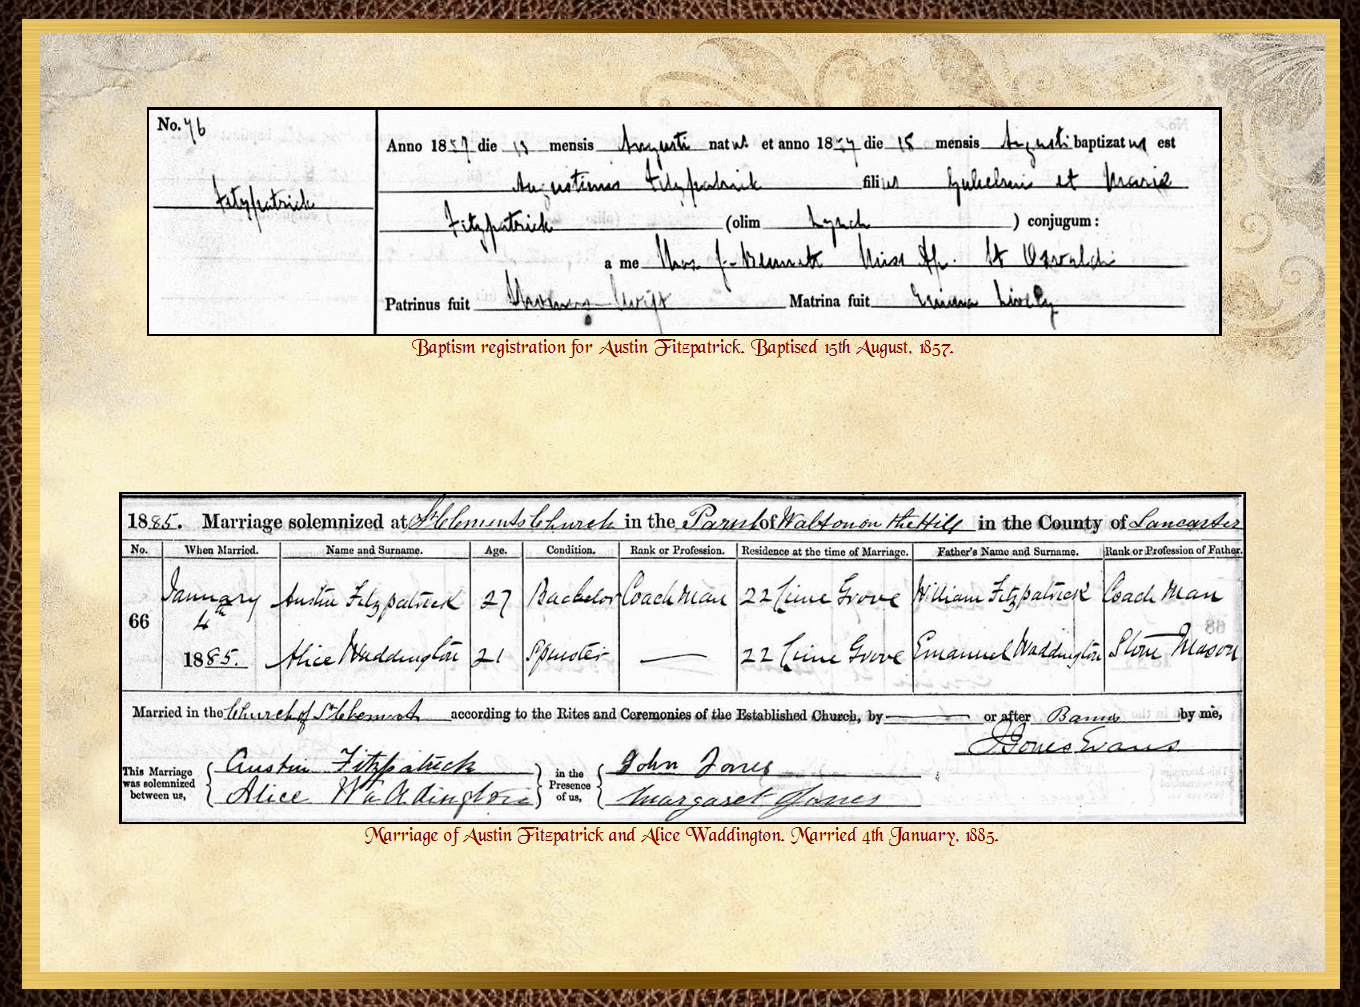 No. 76
Fitzpatrick
Anno 1857 die 13 mensis Augusti natus et anno 1857 die 15 mensis Augusti baptizatus est
Augustinus Fitzpatrick filius Gulielmi et Mariæ
Fitzpatrick (olim Lynch ) conjugum:
a me Thos. J. Bennett Miss Ap. St Oswaldi
Patrinus fuit Thomas Swift Matrina fuit Emma Lively
Baptism registration for Austin Fitzpatrick. Baptised 15th August, 1857.
1885. Marriage solemnized at St Clements Church in the Parish of Walton on the Hill in the County of Lancaster
No. When Married. Name and Surname. Age. Condition. Rank or Profession. Residence at the time of Marriage. Father's Name and Surname. Rank or Profession of Father.
66 January 4th 1885.
Austin Fitzpatrick 27 Bachelor Coach Man 22 Lime Grove William Fitzpatrick Coach Man
Alice Waddington 21 Spinster — 22 Lime Grove Emanuel Waddington Stone Mason
Married in the Church of St Clements according to the Rites and Ceremonies of the Established Church, by — or after Banns by me,
J Jones Evans
This Marriage was solemnized between us, Austin Fitzpatrick in the Presence of us, John Jones
Alice Waddington Margaret Jones
Marriage of Austin Fitzpatrick and Alice Waddington. Married 4th January, 1885.